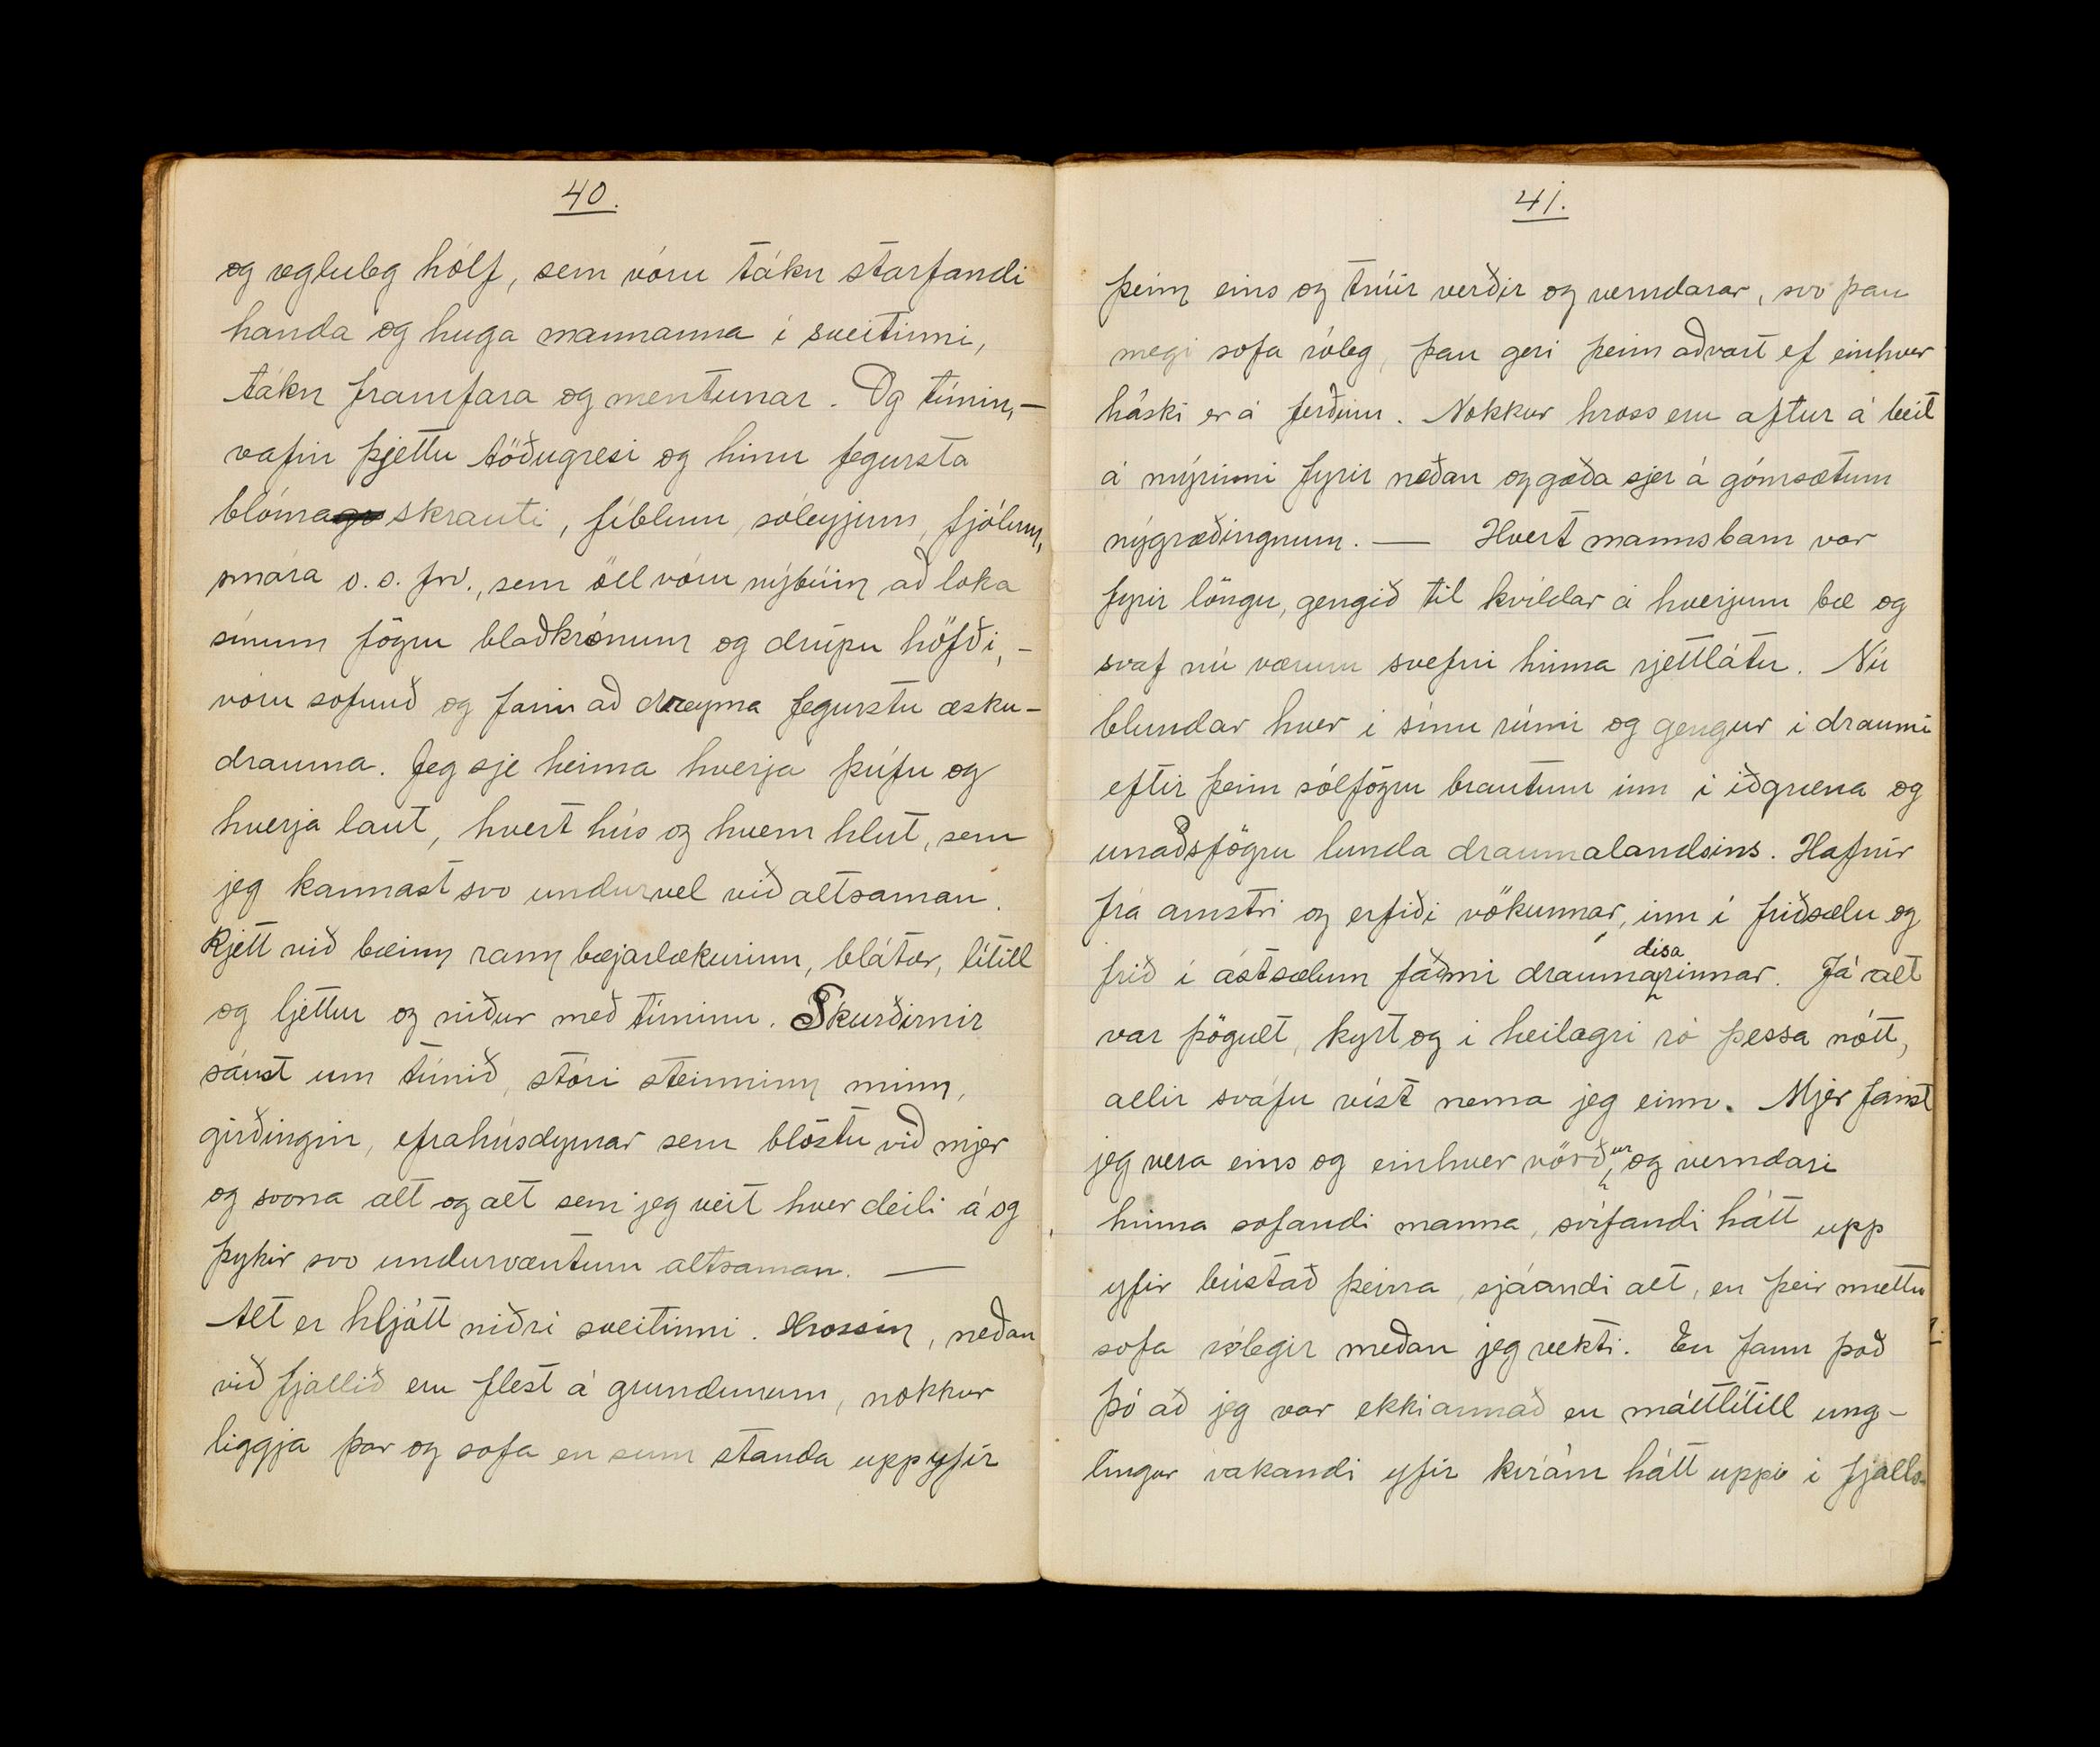 40.
og regluleg hólf, sem vóru tákn starfandi
handa og huga mannanna í sveitinni,
tákn framfara og mentunar. Og túnin, —
vafin þjettu töðugresi og hinu fegursta
blómaskrauti, fíblum, sóleyjum, fjólum,
smára o. s. frv., sem öll vóru nýbúin að loka
sínum fögru blaðkrónum og drúpu höfði, –
vóru sofnuð og farin að dreyma fegurstu æsku-
drauma. Jeg sje heima hverja þúfu og
hverja laut, hvert hús og hvern hlut, sem
jeg kannast svo undurvel við altsaman.
Rjett við bæinn rann bæjarlækurinn, blátær, lítill
og ljettur og niður með túninu. Skurðirnir
sáust um túnið, stóri steinninn minn,
girðingin, efrahúsdyrnar sem blöstu við mjer
og svona alt og alt sem jeg veit hver deili á og
þykir svo undurvæntum altsaman. —
Alt er hljótt niðri sveitinni. Hrossin, neðan
við fjallið eru flest á grundunum, nokkur
liggja þar og sofa en sum standa uppyfir
41.
þeim eins og trúir verðir og verndarar, svo þau
megi sofa róleg, þau geri þeim aðvart ef einhver
háski er á ferðum. Nokkur hross eru aftur á beit
á mýrinni fyrir neðan og gæða sjer á gómsætum
nýgræðingnum. — Hvert mannsbarn var
fyrir löngu, gengið til kvíldar á hverjum bæ og
svaf nú værum svefni hinna rjettlátu. Nú
blundar hver í sínu rúmi og gengur í draumi
eftir þeim sólfögru brautum inn í iðgræna og
unaðsfögru lunda draumalandsins. Hafnir
frá amstri og erfiði vökunnar, inn í friðsælu og
frið í ástsælum faðmi draumadísarinnar. Já alt
var þögult, kyrt og í heilagri ró þessa nótt,
allir sváfu víst nema jeg einn. Mjer fanst
jeg vera eins og einhver vörður og verndari
hinna sofandi manna, svífandi hátt upp
yfir bústað þeirra, sjáandi alt, en þeir mættu
sofa rólegir meðan jeg vekti. En fann það
þó að jeg var ekki annað en máttlítill ung-
lingur vakandi yfir kvíám hátt uppi í fjalls-